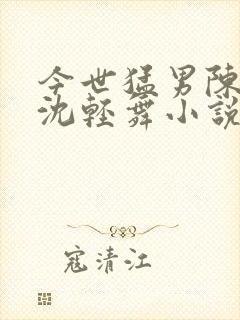 今世猛男陳
沈輕舞小説
寇清江